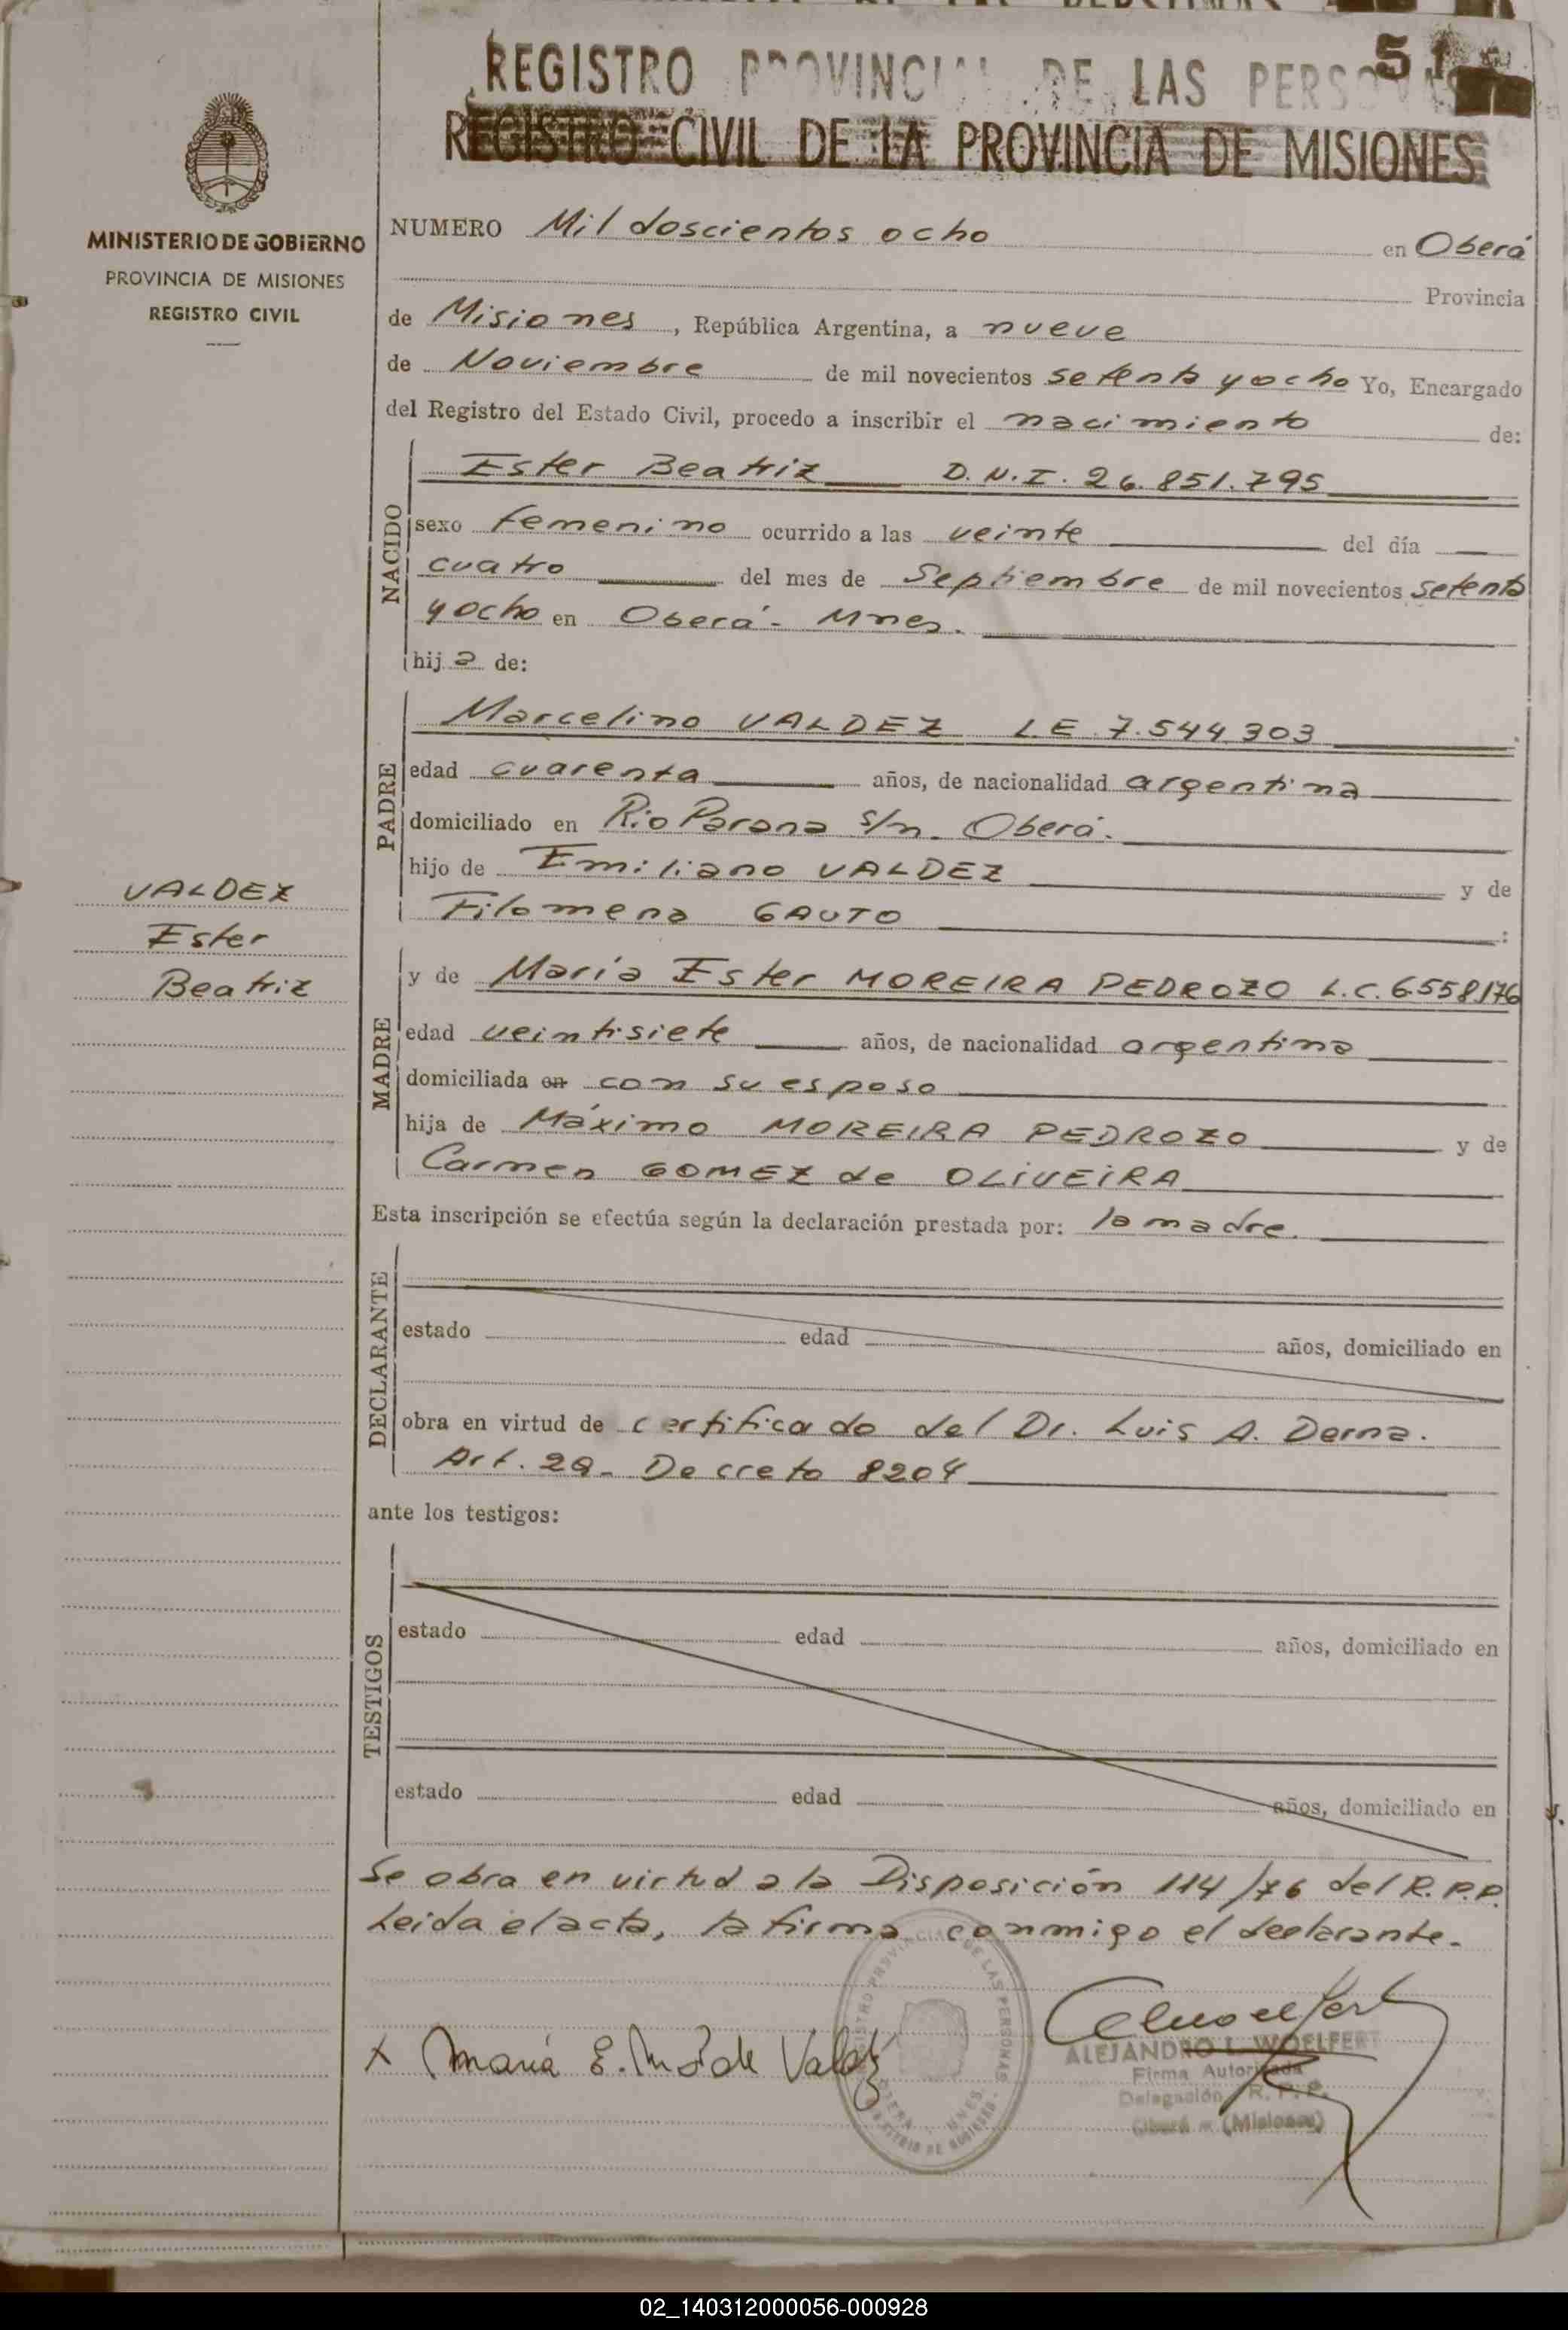 REGISTRO PROVINCIAL DE LAS PERSONAS
51
REGISTRO CIVIL DE LA PROVINCIA DE MISIONES
MINISTERIO DE GOBIERNO
PROVINCIA DE MISIONES
REGISTRO CIVIL
NUMERO Mil doscientos ocho en Oberá
Provincia
de Misiones, República Argentina, a nueve
de Noviembre de mil novecientos setenta y ocho Yo, Encargado
del Registro del Estado Civil, procedo a inscribir el nacimiento de:
NACIDO
Ester Beatriz D.N.I. 26.851.795
sexo femenino ocurrido a las veinte del día
cuatro del mes de Septiembre de mil novecientos setenta
y ocho en Oberá - Mnes.
hija de:
PADRE
Marcelino VALDEZ L.E 7.544.303
edad cuarenta años, de nacionalidad argentina
domiciliado en Rio Parana s/n. Oberá.
hijo de Emiliano VALDEZ y de
Filomena GAUTO
VALDEZ
Ester
Beatriz
MADRE
y de María Ester MOREIRA PEDROZO L.C. 6.558.176
edad veintisiete años, de nacionalidad argentina
domiciliada en con su esposo
hija de Máximo MOREIRA PEDROZO y de
Carmen GOMEZ de OLIVEIRA
Esta inscripción se efectúa según la declaración prestada por: la madre.
DECLARANTE
estado edad años, domiciliado en
obra en virtud de certificado del Dr. Luis A. Derna.
Art. 29. Decreto 8204
ante los testigos:
TESTIGOS
estado edad años, domiciliado en
estado edad años, domiciliado en
Se obra en virtud a la Disposición 114/76 del R.P.P.
Leida el acta, la firma conmigo el declarante.
x María E. M. de Valdez
REGISTRO PROVINCIAL DE LAS PERSONAS
OBERA - MNES.
MINISTERIO DE GOBIERNO
ALEJANDRO L. WOELFERT
Firma Autorizada
Delegación R.P.P.
Oberá - (Misiones)
02_140312000056-000928